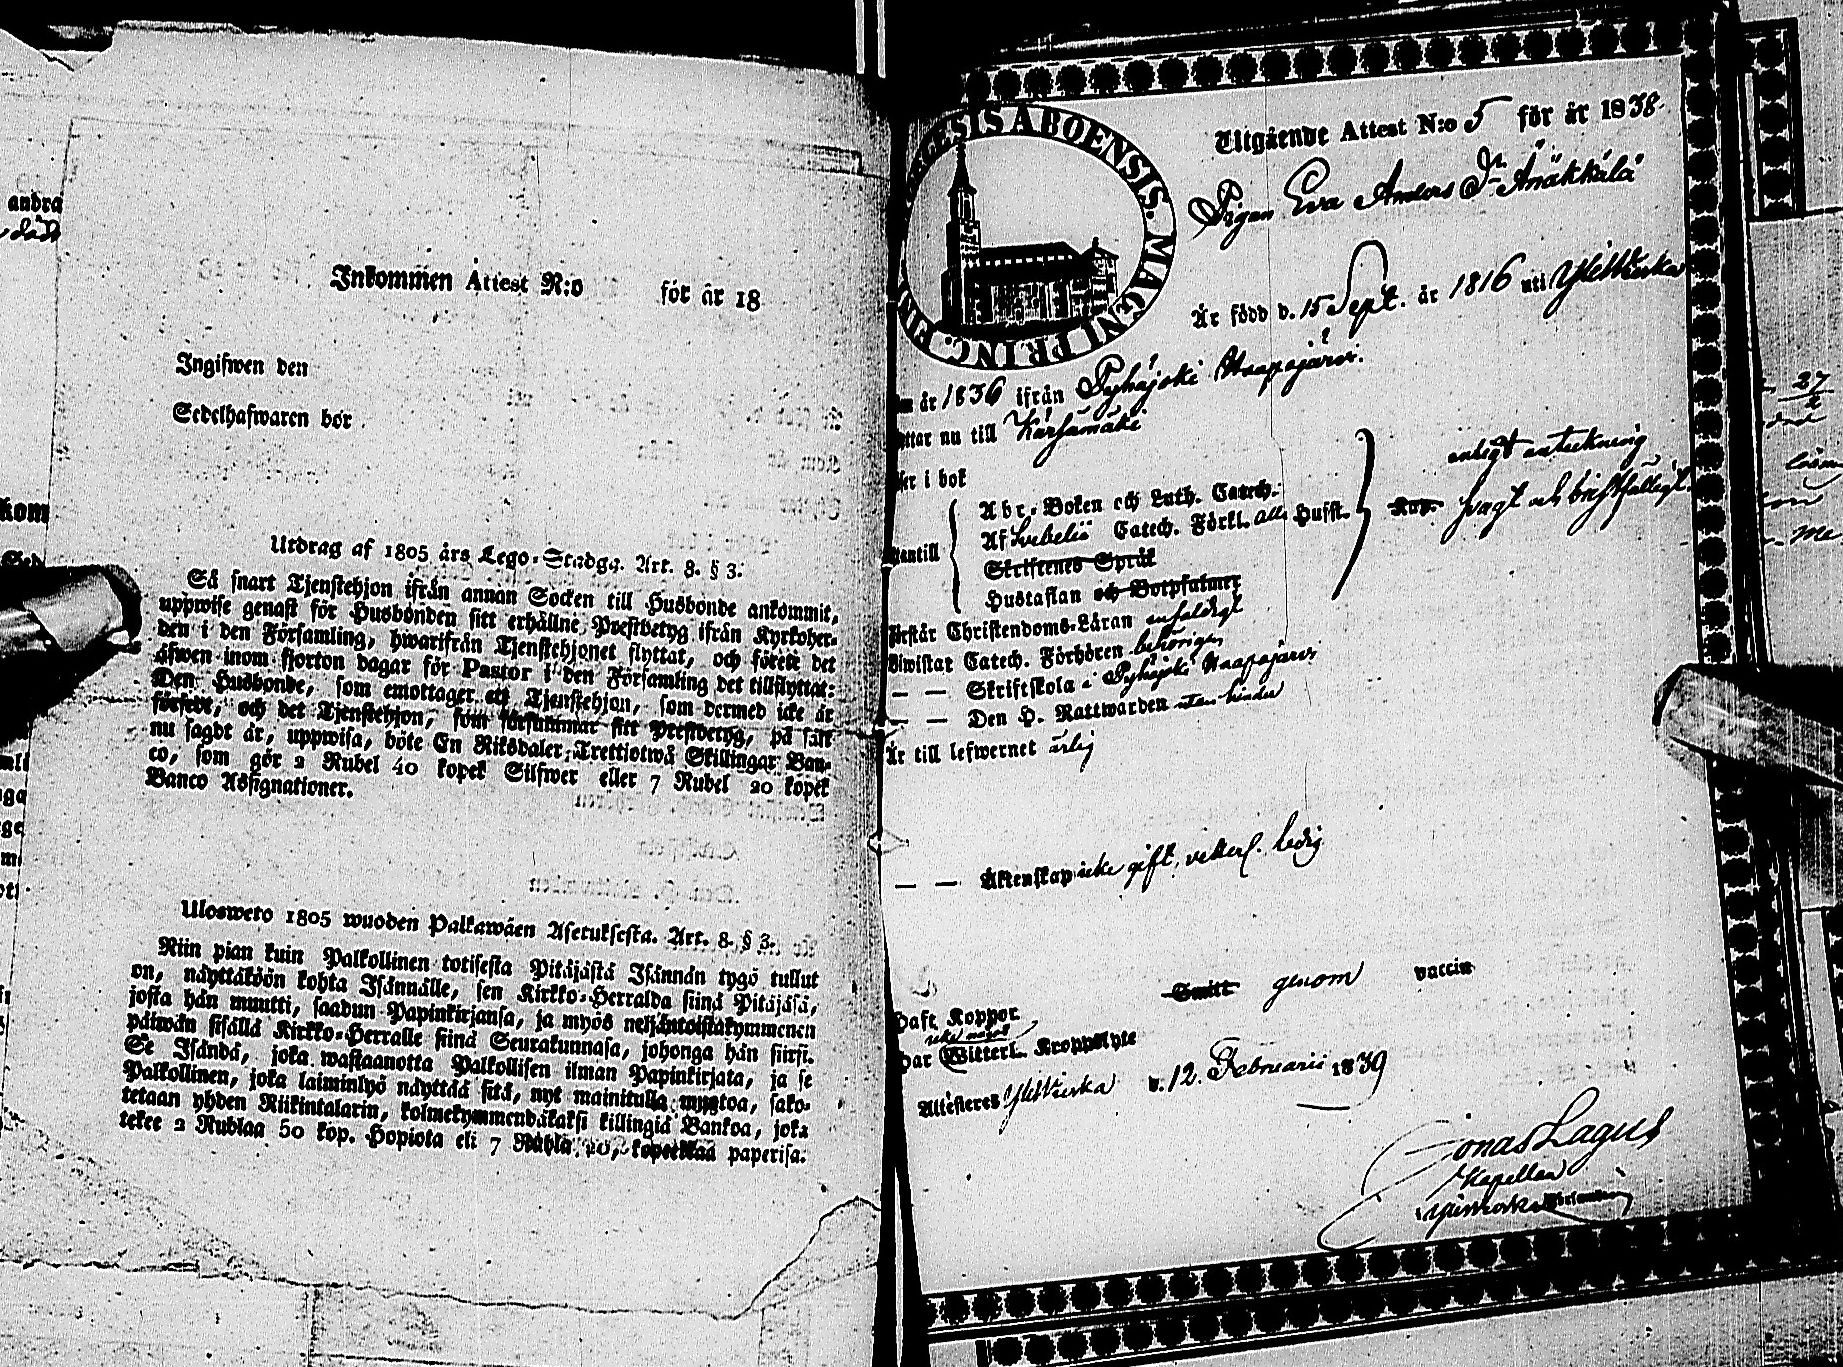 andra
Inkommen Attest N:o för år 18
Ingifwen den
Sedelhafwaren bör
Utdrag af 1805 års Lego-Stadga. Art. 8. § 3.
Så snart Tjenstehjon ifrån annan Socken till Husbonde ankommit,
uppwise genast för Husbonden sitt erhållne Prestbetyg ifrån Kyrkoher-
den i den Församling, hwarifrån Tjenstehjonet flyttat, och förete det
äfwen inom fjorton dagar för Pastor i den Församling det tillflyttat:
Den Husbonde, som emottager ett Tjenstehjon, som dermed icke är
försedt, och det Tjenstehjon, som försummar sitt Prestbetyg, på sätt
nu sagdt är, uppwisa, böte En Riksdaler, Trettiotwå Skillingar Ban-
co, som gör 2 Rubel 40 kopek Silfwer eller 7 Rubel 20 kopek
Banco Assignationer.
Ulosweto 1805 wuoden Palkawäen Asetuksesta. Art. 8. § 3.
Niin pian kuin Palkollinen toisesta Pitäjästä Isännän tygö tullut
on, näyttäköön kohta Isännälle, sen Kirkko-Herralda siinä Pitäjäsä,
josta hän muutti, saadun Papinkirjansa, ja myös neljäntoistakymmenen
päiwän sisällä Kirkko-Herralle siinä Seurakunnasa, johonga hän siirsi.
Se Isändä, joka wastaanotta Palkollisen ilman Papinkirjata, ja se
Palkollinen, joka laiminlyö näyttää sitä, nyt mainitulla muotoa, sako-
tetaan yhden Riikintalarin, kolmekymmendäkaksi killingiä Bankoa, joka
tekee 2 Rublaa 50 kop. Hopiota eli 7 Rubla 20 kopeekkaa paperisa.
ABOENSIS. MAGNI PRINC. FIN
Utgående Attest N:o 5 för år 1838
Pigan Eva Anders Dr Änäkkälä
Är född d. 15 Sept. år 1816 uti Ylivieska
år 1836 ifrån Pyhäjoki Haapajärvi.
nu till Kärsämäki
i bok
Abc-Boken och Luth. Catech.
Af Svebelii Catech. Förkl. alla Husst.
Skriftenes Språk
Hustaflan och Botpsalmer
enligt anteckning
svagt och bristfälligt
antill
Förstår Christendoms-Läran enfaldigt
Biwistat Catech. Förhören behörigen
— — Skriftskola i Pyhäjoki Haapajärvi
— — Den H. Nattwarden utan hinder
Är till lefwernet ärlig
— — Äktenskap icke gift, veterl. ledig
Haft Koppor Smitt genom vaccin
Har Witterl. Kroppslyte
Attesteres Ylivieska d. 12 Februarii 1839
Jonas Lagus
Kapellan